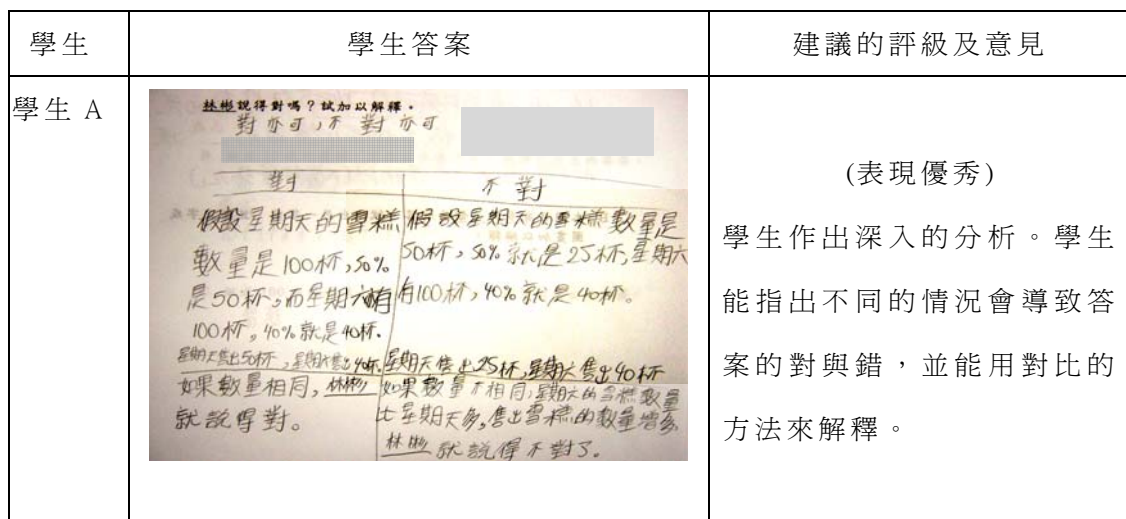 學生
學生答案
建議的評級及意見
學生 A
林彬說得對嗎？試加以解釋。
對亦可，不對亦可
對
不對
假設星期天的雪糕
數量是100杯，50%
是50杯，而星期六有
100杯，40%就是40杯。
星期天售出50杯，星期六售出40杯。
如果數量相同，林彬
就說得對。
假設星期天的雪糕數量是
50杯，50%就是25杯，星期六
有100杯，40%就是40杯。
星期天售出25杯，星期六售出40杯
如果數量不相同，星期六的雪糕數量
比星期天多，售出雪糕的數量增多
林彬就說得不對了。
(表現優秀)
學生作出深入的分析。學生
能指出不同的情況會導致答
案的對與錯，並能用對比的
方法來解釋。